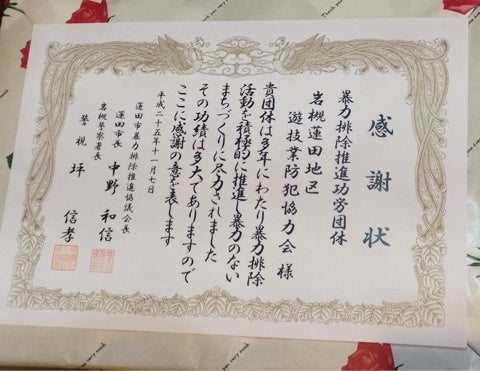 感謝状
暴力排除推進功労団体
岩槻蓮田地区
遊技業防犯協力会 様
貴団体は多年にわたり暴力排除
活動を積極的に推進し暴力のない
まちづくりに尽力されました
その功績は多大でありますので
ここに感謝の意を表します
平成二十五年十一月七日
蓮田市暴力排除推進協議会長
蓮田市長 中野和信
岩槻警察署長
警視 坪信孝
Thank you very much